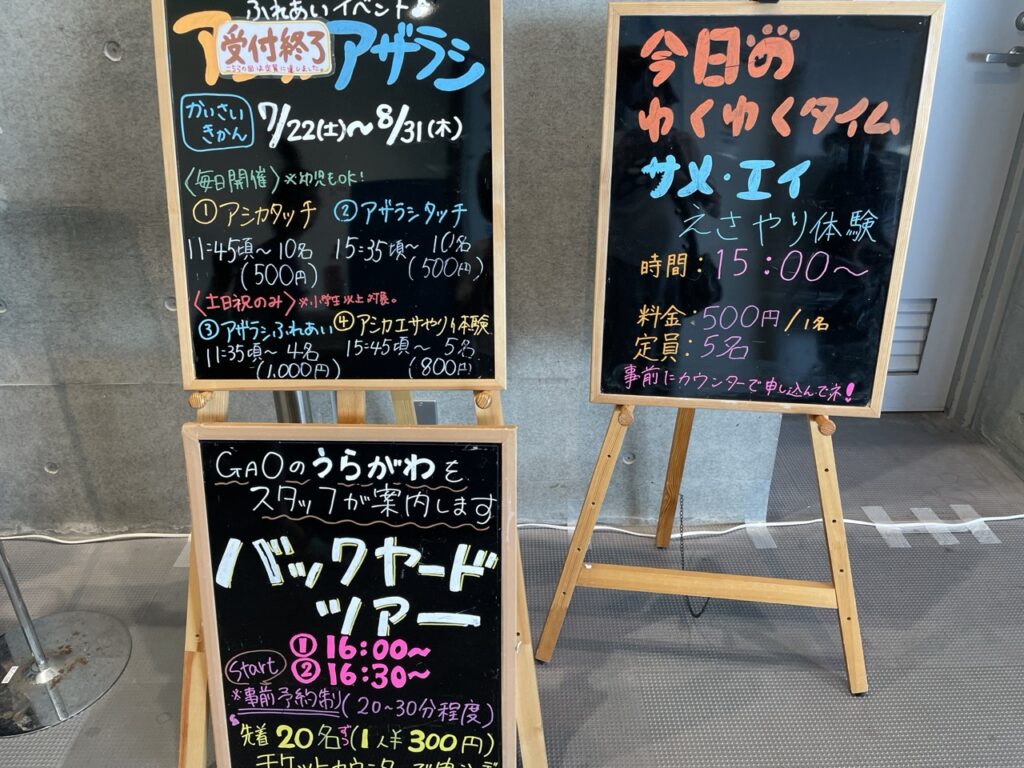 ふれあいイベント♪
ア
受付終了
こちらの回は定員に達しました。
アザラシ
かいさい
きかん
7/22(土)～8/31(木)
〈毎日開催〉※幼児もOK!
①アシカタッチ
11:45頃～10名
(500円)
②アザラシタッチ
15:35頃～10名
(500円)
〈土日祝のみ〉※小学生以上対象。
③アザラシふれあい
11:35頃～4名
(1,000円)
④アシカエサやり体験
15:45頃～5名
(800円)
GAOのうらがわを
スタッフが案内します
バックヤード
ツアー
Start
①16:00～
②16:30～
※事前予約制(20~30分程度)
先着20名ずつ(1人¥300円)
チケットカウンターで
今日の
わくわくタイム
サメ・エイ
えさやり体験
時間:15:00～
料金:500円/1名
定員:5名
事前にカウンターで申し込んでネ!